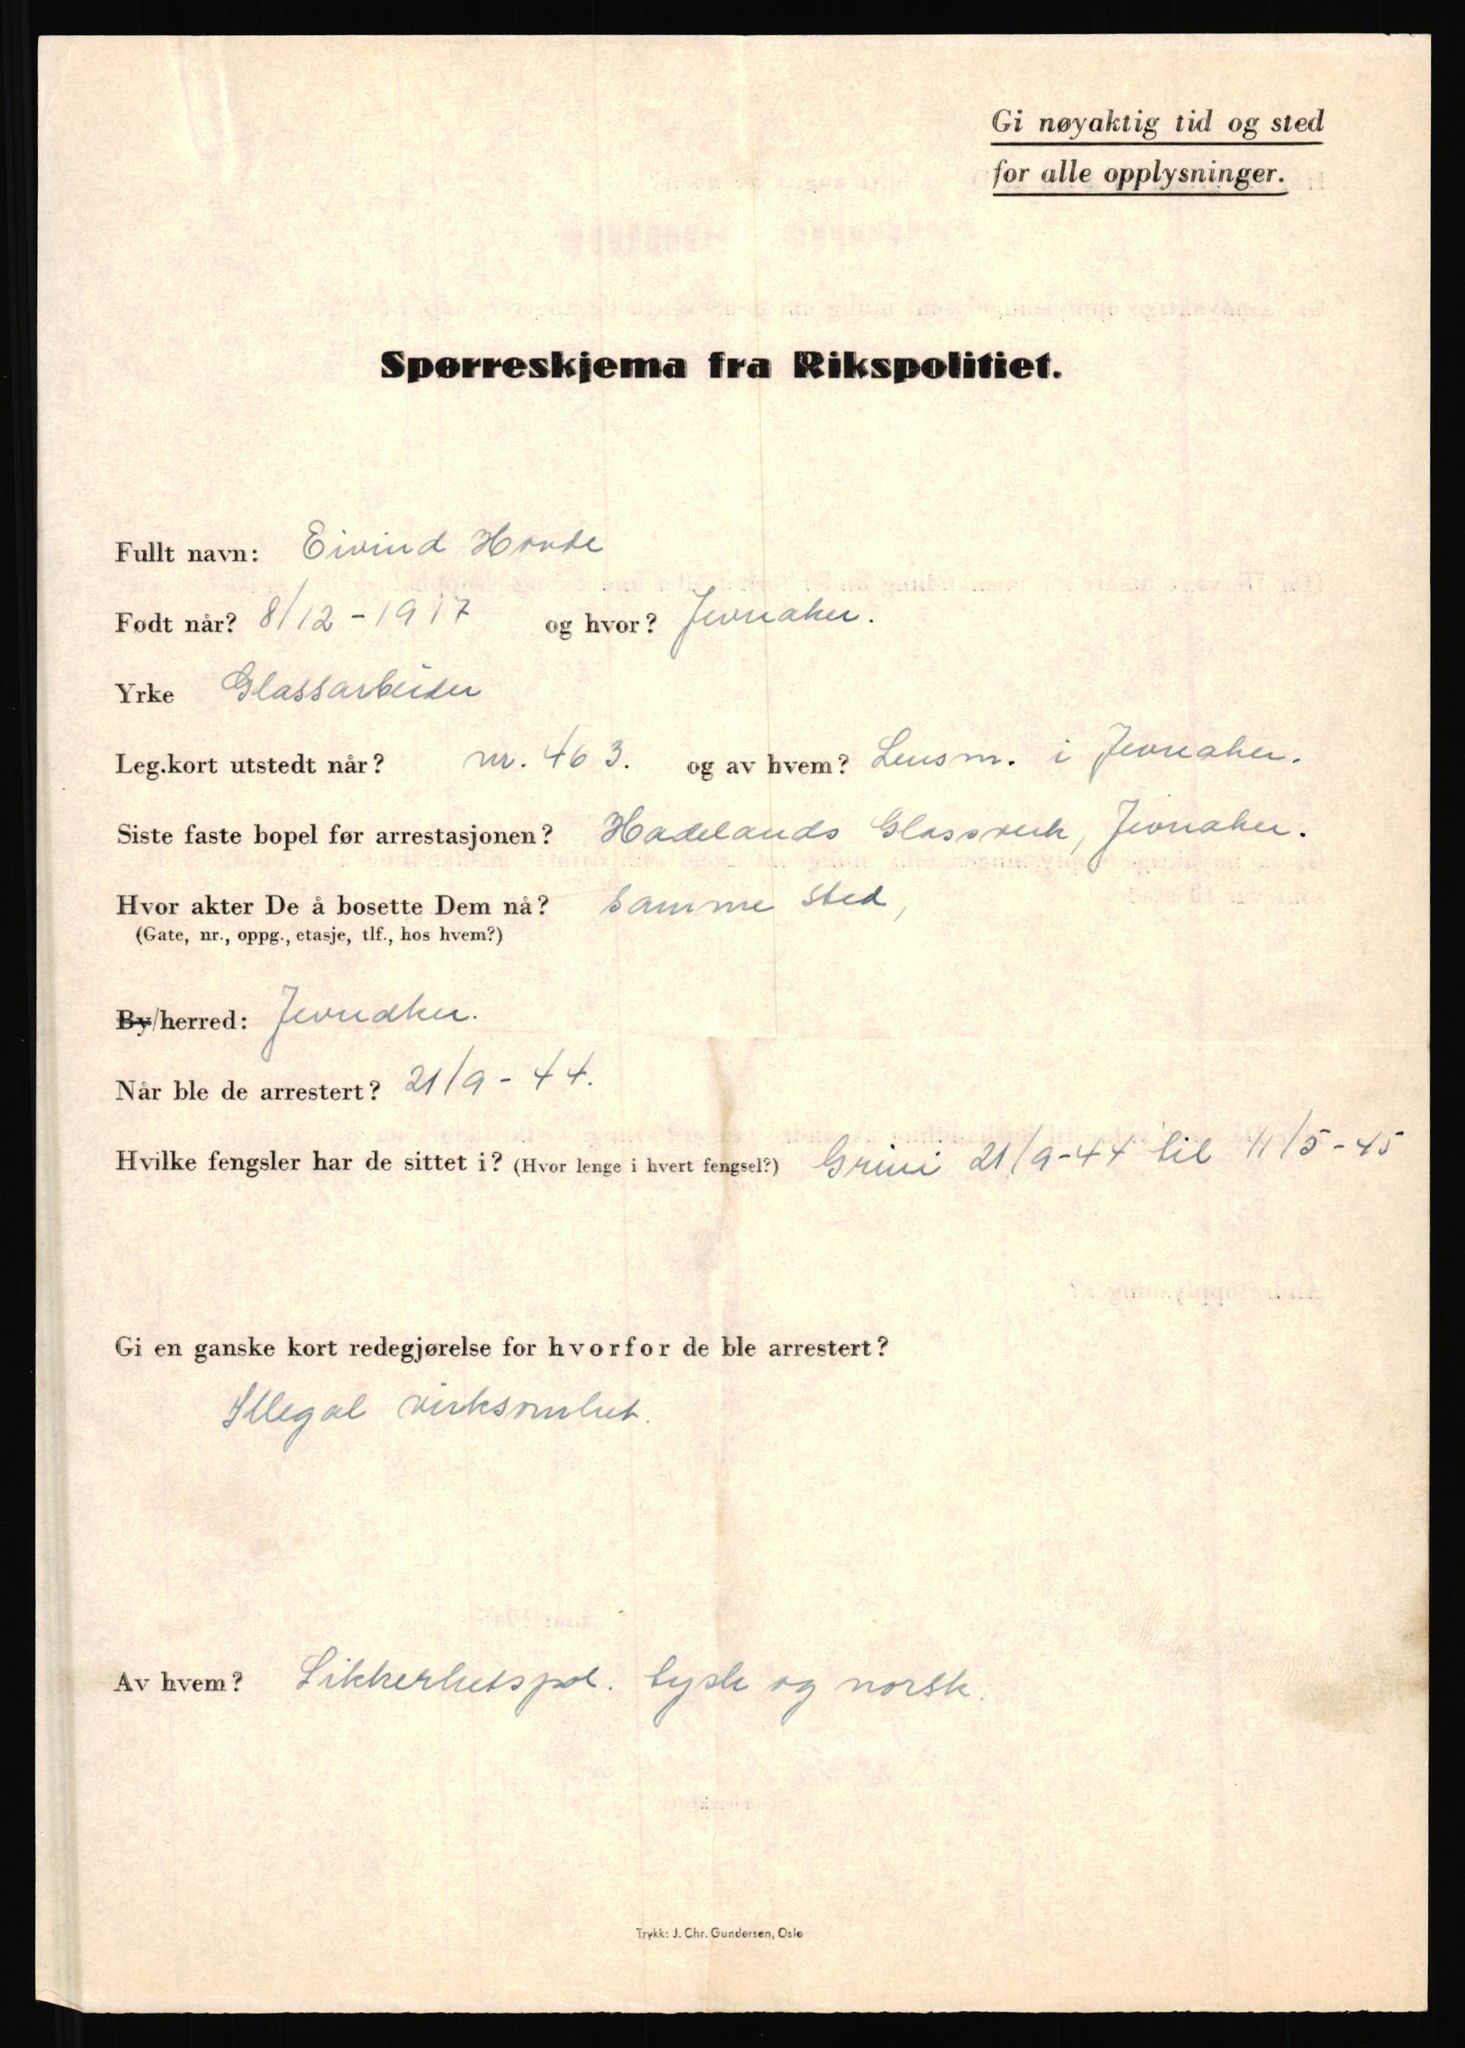 Gi nøyaktig tid og sted
for alle opplysninger.
Spørreskjema fra Rikspolitiet.
Fullt navn: Eivind Hovde
Født når? 8/12-1917 og hvor? Jevnaker.
Yrke Glassarbeider
Leg.kort utstedt når? nr. 463. og av hvem? Lensm. i Jevnaker.
Siste faste bopel før arrestasjonen? Hadelands Glassverk, Jevnaker.
Hvor akter De å bosette Dem nå? samme sted,
(Gate, nr., oppg., etasje, tlf., hos hvem?)
By/herred: Jevnaker.
Når ble de arrestert? 21/9-44.
Hvilke fengsler har de sittet i? (Hvor lenge i hvert fengsel?) Grini 21/9-44 til 11/5-45
Gi en ganske kort redegjørelse for hvorfor de ble arrestert?
Illegal virksomhet.
Av hvem? Sikkerhetspol. tysk og norsk.
Trykk: J. Chr. Gundersen, Oslo